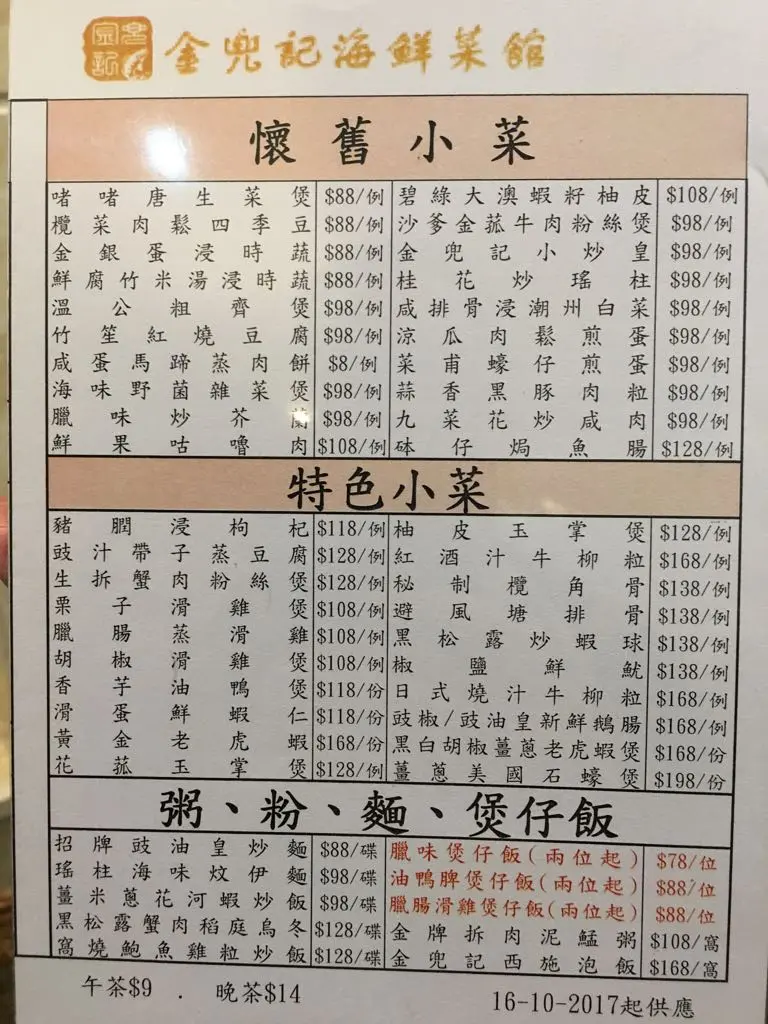 金兜記海鮮菜館
懷舊小菜
啫啫唐生菜煲 $88/例 碧綠大澳蝦籽柚皮 $108/例
欖菜肉鬆四季豆 $88/例 沙爹金菰牛肉粉絲煲 $98/例
金銀蛋浸時蔬 $88/例 金兜記小炒皇 $98/例
鮮腐竹米湯浸時蔬 $88/例 桂花炒瑤柱 $98/例
溫公粗齊煲 $98/例 咸排骨浸潮州白菜 $98/例
竹笙紅燒豆腐 $98/例 涼瓜肉鬆煎蛋 $98/例
咸蛋馬蹄蒸肉餅 $8/例 菜甫蠔仔煎蛋 $98/例
海味野菌雜菜煲 $98/例 蒜香黑豚肉粒 $98/例
臘味炒芥蘭 $98/例 九菜花炒咸肉 $98/例
鮮果咕嚕肉 $108/例 砵仔焗魚腸 $128/例
特色小菜
豬膶浸枸杞 $118/例 柚皮玉掌煲 $128/例
豉汁帶子蒸豆腐 $128/例 紅酒汁牛柳粒 $168/例
生拆蟹肉粉絲煲 $128/例 秘制欖角骨 $138/例
栗子滑雞煲 $108/例 避風塘排骨 $138/例
臘腸蒸滑雞 $108/例 黑松露炒蝦球 $138/例
胡椒滑雞煲 $108/例 椒鹽鮮魷 $138/例
香芋油鴨煲 $118/份 日式燒汁牛柳粒 $168/例
滑蛋鮮蝦仁 $118/份 豉椒/豉油皇新鮮鵝腸 $168/例
黃金老虎蝦 $168/份 黑白胡椒薑蔥老虎蝦煲 $168/份
花菰玉掌煲 $128/例 薑蔥美國石蠔煲 $198/份
粥、粉、麵、煲仔飯
招牌豉油皇炒麵 $88/碟 臘味煲仔飯(兩位起) $78/位
瑤柱海味炆伊麵 $98/碟 油鴨脾煲仔飯(兩位起) $88/位
薑米蔥花河蝦炒飯 $98/碟 臘腸滑雞煲仔飯(兩位起) $88/位
黑松露蟹肉稻庭烏冬 $128/碟 金牌拆肉泥鯭粥 $108/窩
窩燒鮑魚雞粒炒飯 $128/碟 金兜記西施泡飯 $168/窩
午茶$9 . 晚茶$14 16-10-2017起供應